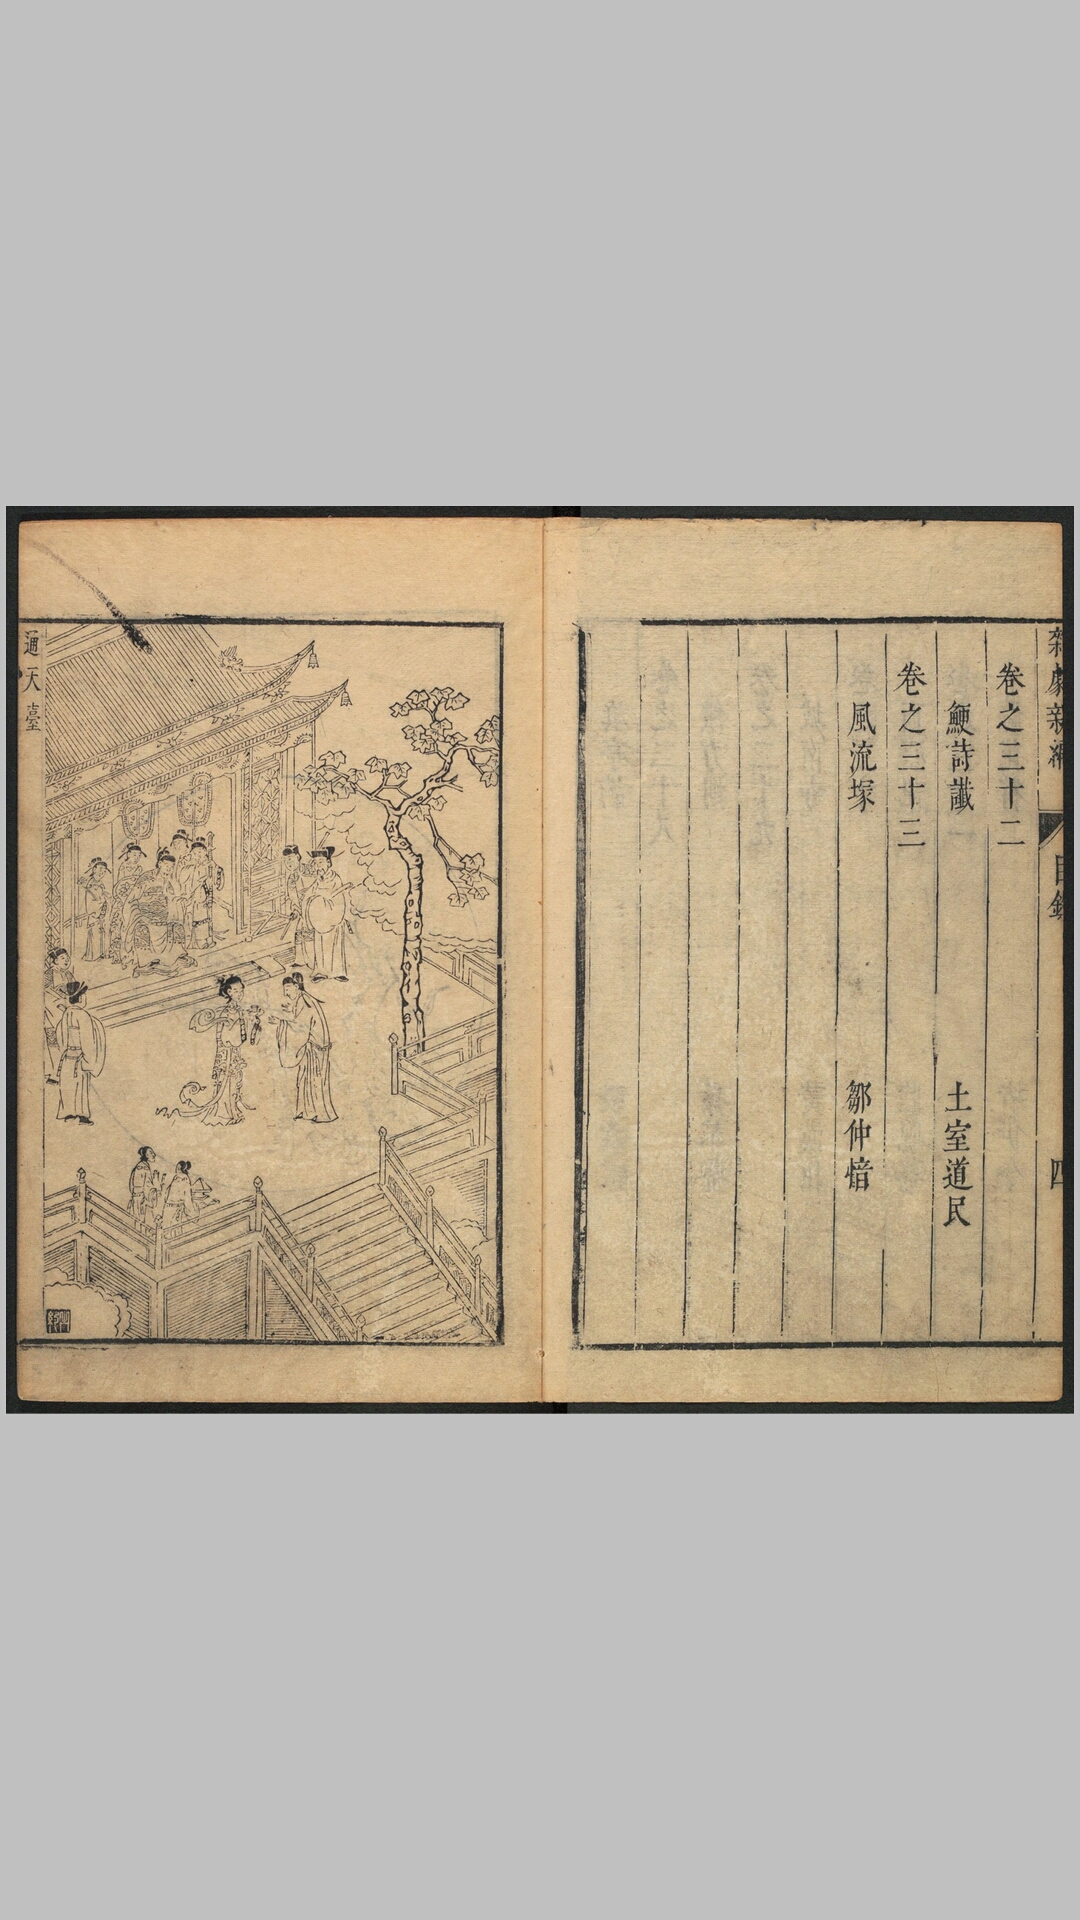 雜劇新編
目錄
四
卷之三十二
鯁詩讖
土室道民
卷之三十三
風流塚
鄒仲愔
通天臺